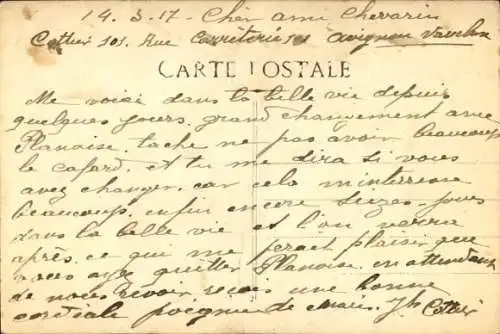 14. 3. 17. Cher ami Chevarin
Cottier 101. Rue Carreterie 101 Avignon Vaucluse
CARTE POSTALE
Me voici dans la belle vie depuis
quelques jours. grand changement avec
Planoise. tache ne pas avoir beaucoup
le cafard. et tu me dira si vous
avez changer. car cela minterresse
beaucoup. enfin encore jours
dans la belle vie et l'on verra
après. ce qui me ferait plaisir que
vous aye quitter Planoise. en attendant
de nous revoir. recois une bonne
cordiale poignée de main. Cottier